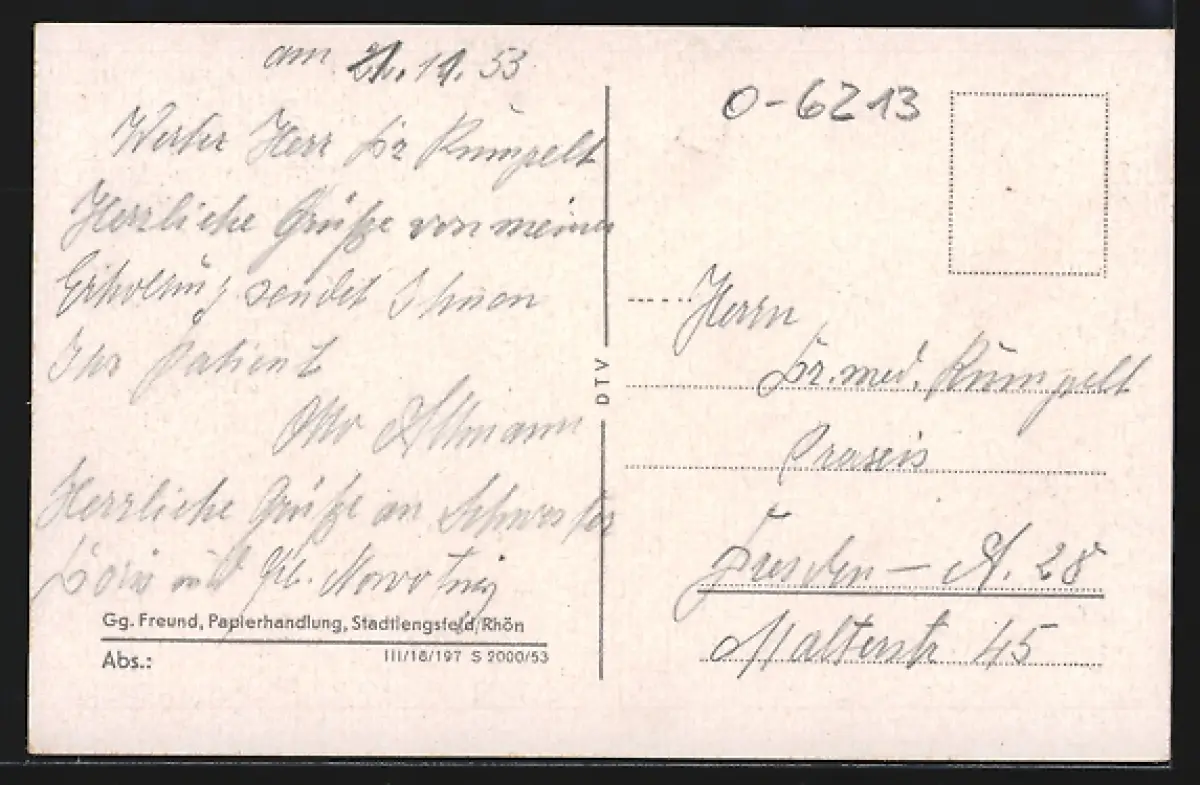 am 21.11.53
Werter Herr Dr Rümpelt
Herzliche Grüße von meiner
Erholung sendet Ihnen
Ihr Patient
Otto Altmann
Herzliche Grüße an Schwester
und Frl. Nowotny
Gg. Freund, Papierhandlung, Stadtlengsfeld/Rhön
Abs.:
III/18/197 S 2000/53
DTV
O-6213
Herrn
Dr. med. Rümpelt
Praxis
Dresden – A. 28
Malterstr 45